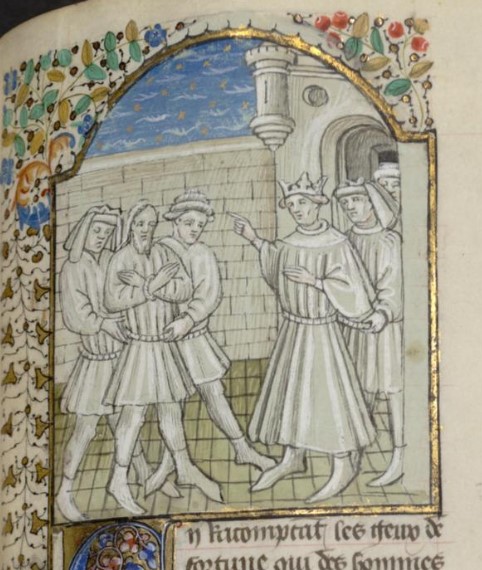 En Racomptāt les ieux de
fortune qui des hommes